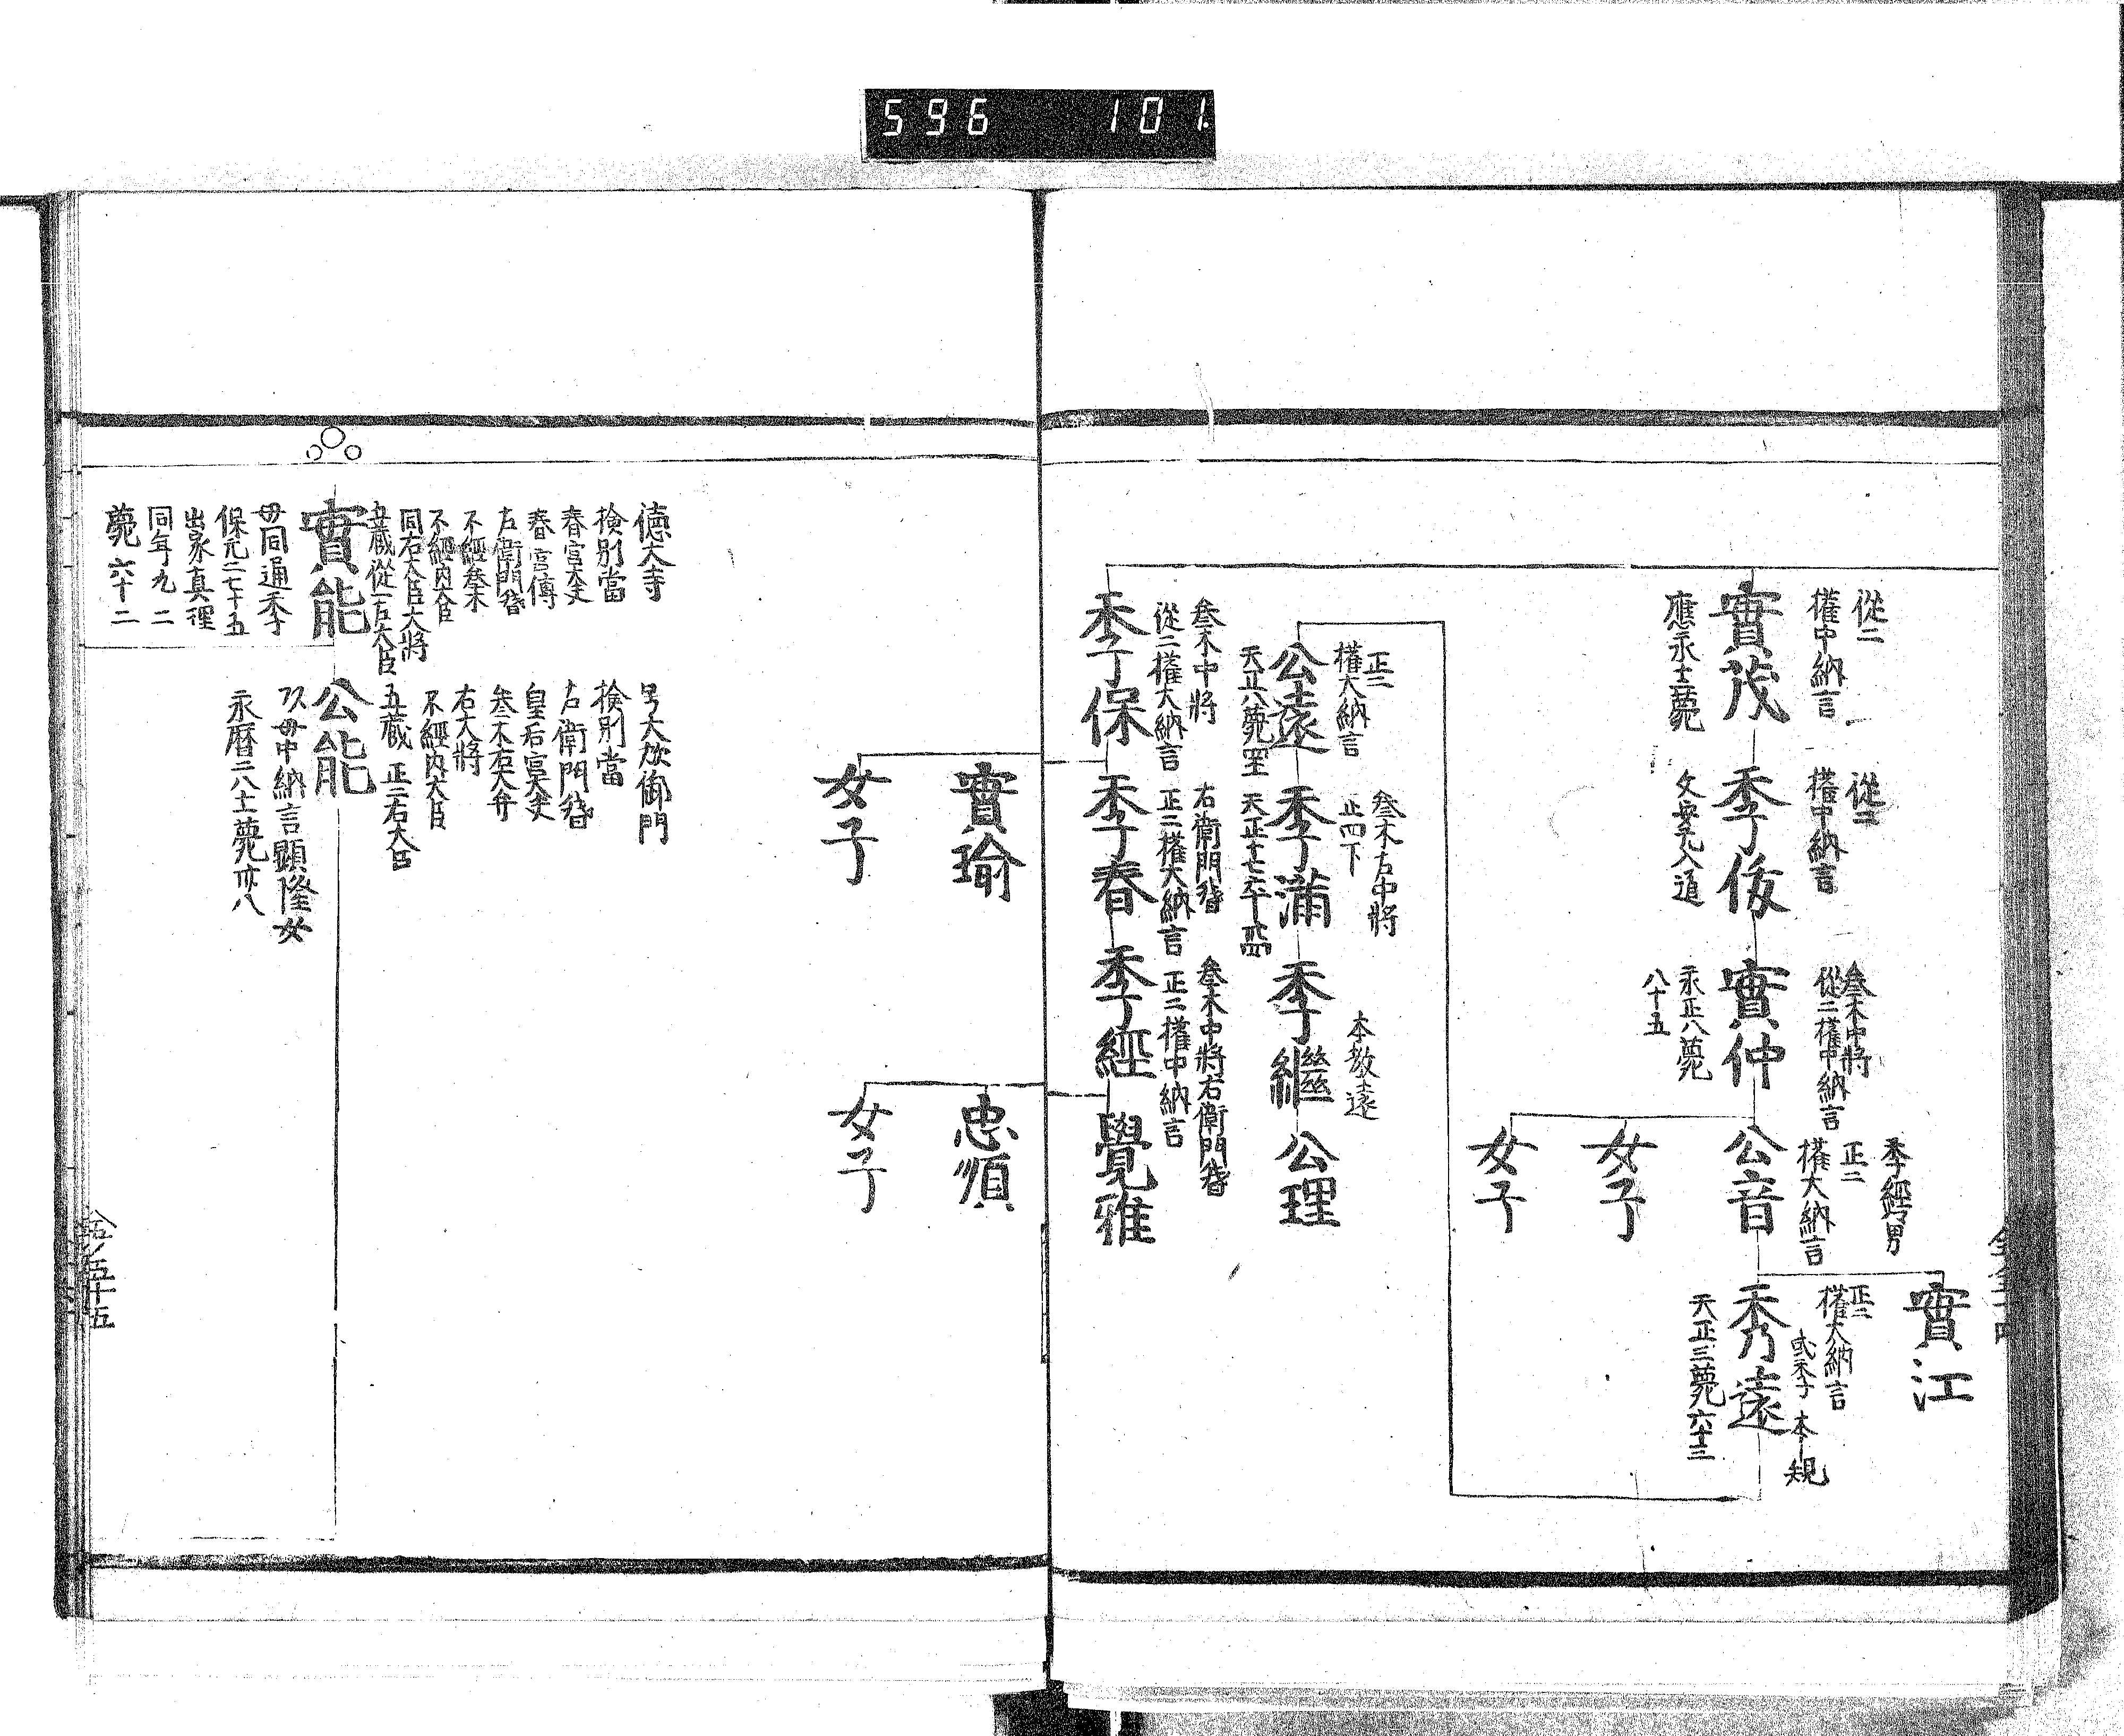 596 101
從二
權中納言
實茂
應永十二薨
從二
權中納言
季俊
文安元入道
叅木中將
從二權中納言
實仲
永正八薨
八十五
季經男
正二
權大納言
公音
女子
女子
實江
正二
權大納言
或季 本規
秀遠
天正三薨六十三
正二
權大納言
公遠
天正八薨
叅木右中將
正四下
季滿
天正十七卒
本教遠
季繼
公理
叅木中將
從二權大納言
季保
右衛門督
正二權大納言
季春
叅木中將右衛門督
正二權中納言
季經
覺雅
實瑜
女子
忠順
女子
德大寺
檢別當
春宮大夫
春宮傅
左衛門督
不經叅木
不經內大臣
同右大臣大將
五蔵從一左大臣
實能
母同通季
保元二七十五
出家真理
同年九二
薨六十二
号大炊御門
檢別當
右衛門督
皇后宮大夫
叅木右大弁
右大將
不經內大臣
五蔵 正二右大臣
公能
母中納言顯隆女
永曆二八十一薨卌八
五十五